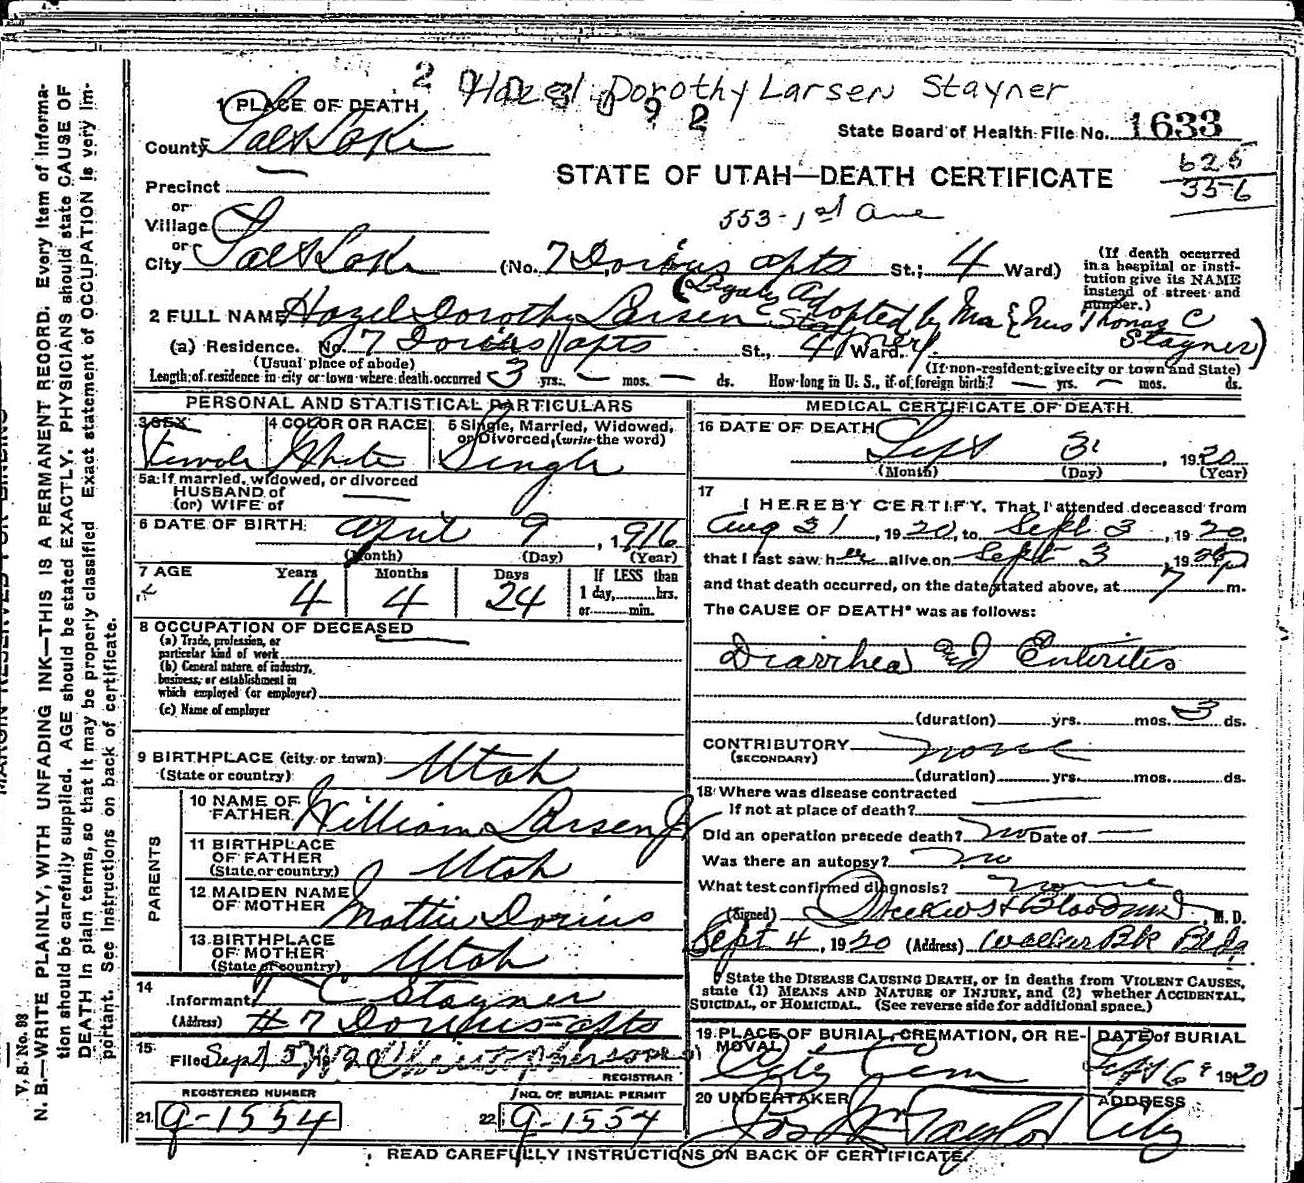 Hazel Dorothy Larsen Stayner
1 PLACE OF DEATH
State Board of Health File No. 1633
County Salt Lake
625
356
STATE OF UTAH—DEATH CERTIFICATE
Precinct
553-1st Ave
or
Village
or
City Salt Lake (No. 7 Dorius apts St.; 4 Ward)
(If death occurred in a hospital or institution give its NAME instead of street and number.)
(Legally Adopted by Mr & Mrs Thomas C Stayner)
2 FULL NAME Hazel Dorothy Larsen Stayner
(a) Residence. No. 7 Dorius apts St., 4 Ward.
(Usual place of abode) (If non-resident give city or town and State)
Length of residence in city or town where death occurred 3 yrs. — mos. — ds. How long in U. S., if of foreign birth? — yrs. — mos. ds.
PERSONAL AND STATISTICAL PARTICULARS
3 SEX Female
4 COLOR OR RACE White
5 Single, Married, Widowed, or Divorced, (write the word) Single
5a If married, widowed, or divorced
HUSBAND of
(or) WIFE of
6 DATE OF BIRTH April 9, 1916
(Month) (Day) (Year)
7 AGE Years 4 Months 4 Days 24
If LESS than
1 day, hrs.
or min.
8 OCCUPATION OF DECEASED
(a) Trade, profession, or
particular kind of work
(b) General nature of industry,
business, or establishment in
which employed (or employer)
(c) Name of employer
9 BIRTHPLACE (city or town) Utah
(State or country)
PARENTS
10 NAME OF FATHER William Larsen Jr
11 BIRTHPLACE OF FATHER (State or country) Utah
12 MAIDEN NAME OF MOTHER Mattie Dorius
13 BIRTHPLACE OF MOTHER (State or country) Utah
14
Informant T C Stayner
(Address) #7 Dorius apts
15
Filed Sept 5, 1920 Christopherson
REGISTRAR
REGISTERED NUMBER
21. 9-1554
NO. OF BURIAL PERMIT
22. 9-1554
MEDICAL CERTIFICATE OF DEATH
16 DATE OF DEATH Sept 3, 1920
(Month) (Day) (Year)
17
I HEREBY CERTIFY, That I attended deceased from
Aug 31, 1920, to Sept 3, 1920,
that I last saw her alive on Sept 3, 1920
and that death occurred, on the date stated above, at 7 p m.
The CAUSE OF DEATH* was as follows:
Diarrhea and Enteritis
(duration) yrs. mos. 3 ds.
CONTRIBUTORY none
(SECONDARY)
(duration) yrs. mos. ds.
18 Where was disease contracted
If not at place of death?
Did an operation precede death? no Date of —
Was there an autopsy? no
What test confirmed diagnosis? none
(Signed) M. D.
Sept 4, 1920 (Address) Walker Bk Bldg
* State the DISEASE CAUSING DEATH, or in deaths from VIOLENT CAUSES,
state (1) MEANS AND NATURE OF INJURY, and (2) whether ACCIDENTAL,
SUICIDAL, or HOMICIDAL. (See reverse side for additional space.)
19 PLACE OF BURIAL, CREMATION, OR REMOVAL City Cem
DATE of BURIAL Sept 6, 1920
20 UNDERTAKER Jos Wm Taylor
ADDRESS City
READ CAREFULLY INSTRUCTIONS ON BACK OF CERTIFICATE.
V. S. No. 98
N. B.—WRITE PLAINLY, WITH UNFADING INK—THIS IS A PERMANENT RECORD. Every item of information should be carefully supplied. AGE should be stated EXACTLY. PHYSICIANS should state CAUSE OF DEATH in plain terms, so that it may be properly classified. Exact statement of OCCUPATION is very important. See instructions on back of certificate.